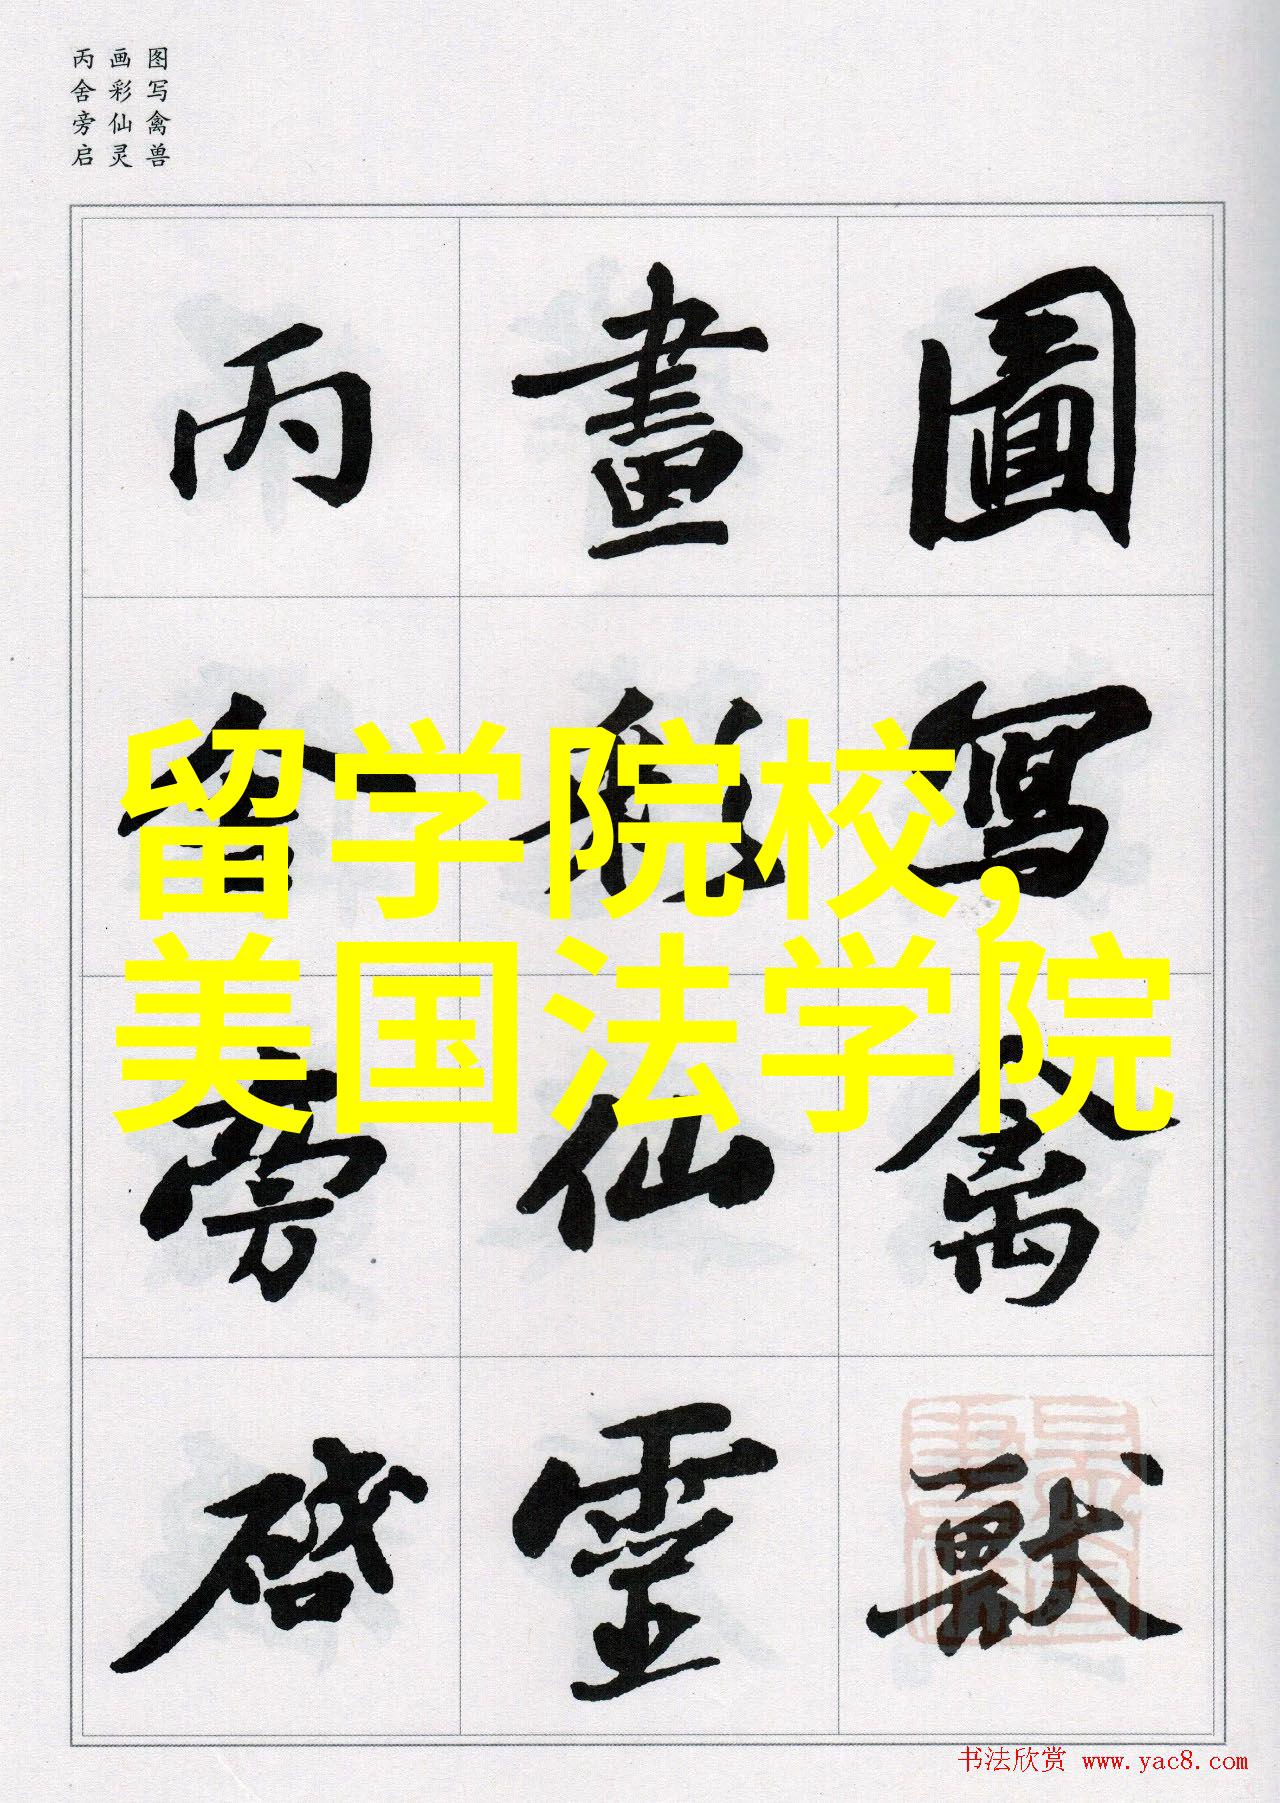 图写禽兽
画彩仙灵
丙舍旁启
圖寫禽獸
畫彩仙靈
丙舍旁啓
留学院校,
美国法学院
书法欣赏 www.yac8.com